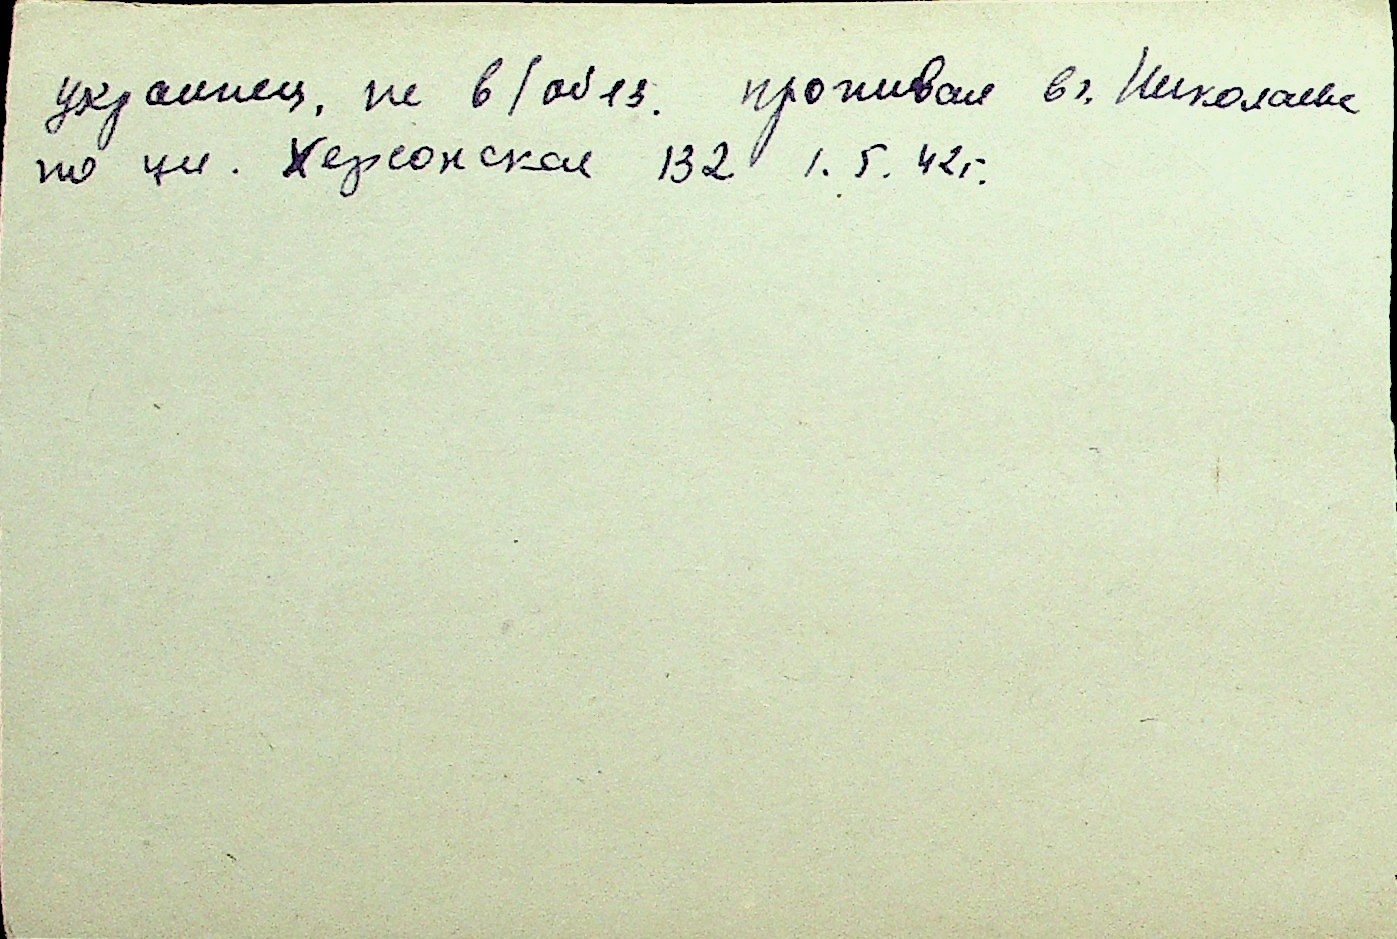 украинец, не в/обяз. проживал в г. Николаеве
по ул. Херсонская 132 1.5.42г.